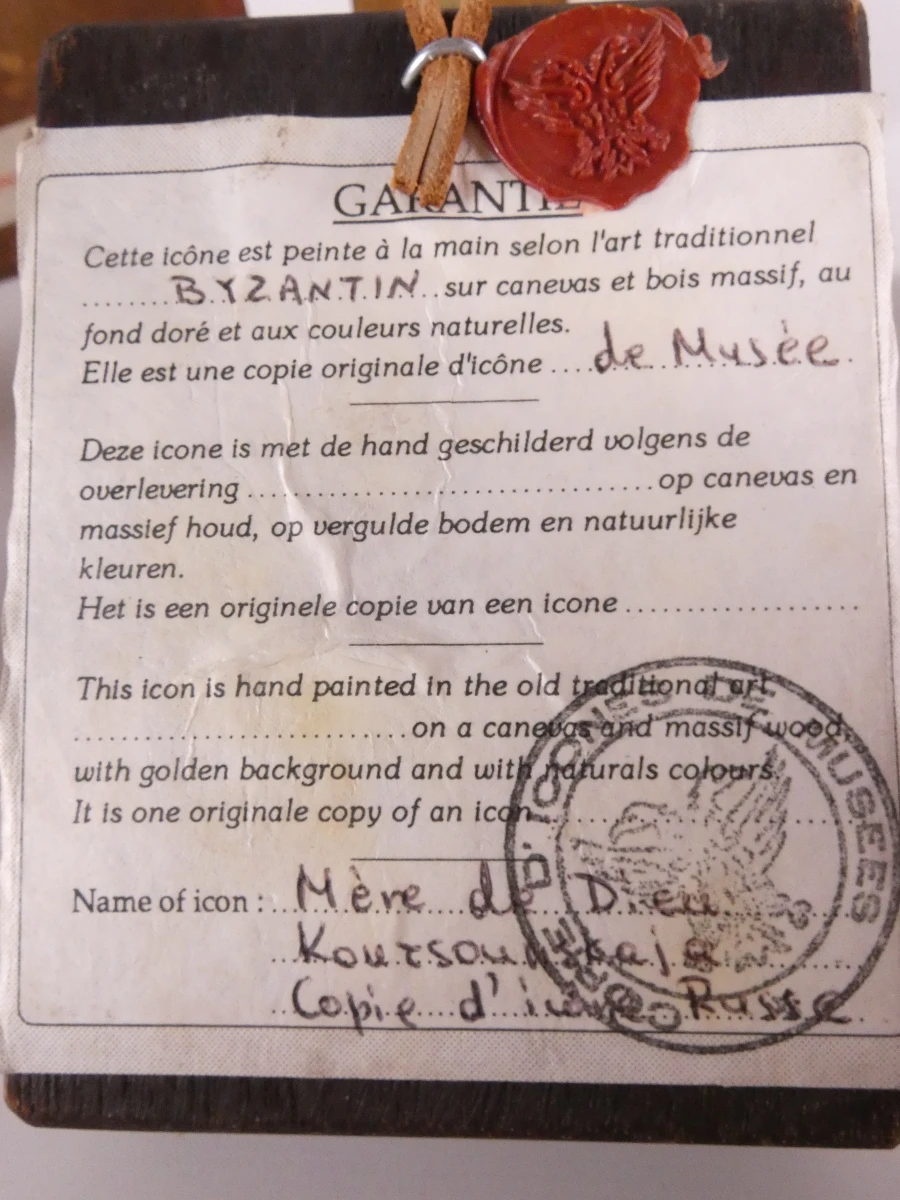 GARANTIE
Cette icône est peinte à la main selon l'art traditionnel
........BYZANTIN..sur canevas et bois massif, au
fond doré et aux couleurs naturelles.
Elle est une copie originale d'icône ....de Musèe.
Deze icone is met de hand geschilderd volgens de
overlevering ....................................... op canevas en
massief houd, op vergulde bodem en natuurlijke
kleuren.
Het is een originele copie van een icone ......................
This icon is hand painted in the old traditional art
................................ on a canevas and massif wood,
with golden background and with naturals colours.
It is one originale copy of an icon..............................
Name of icon : Mère de Dieu
Koursounskaja
Copie d'icône Russe
COPIE D'ICONES DE MUSEES